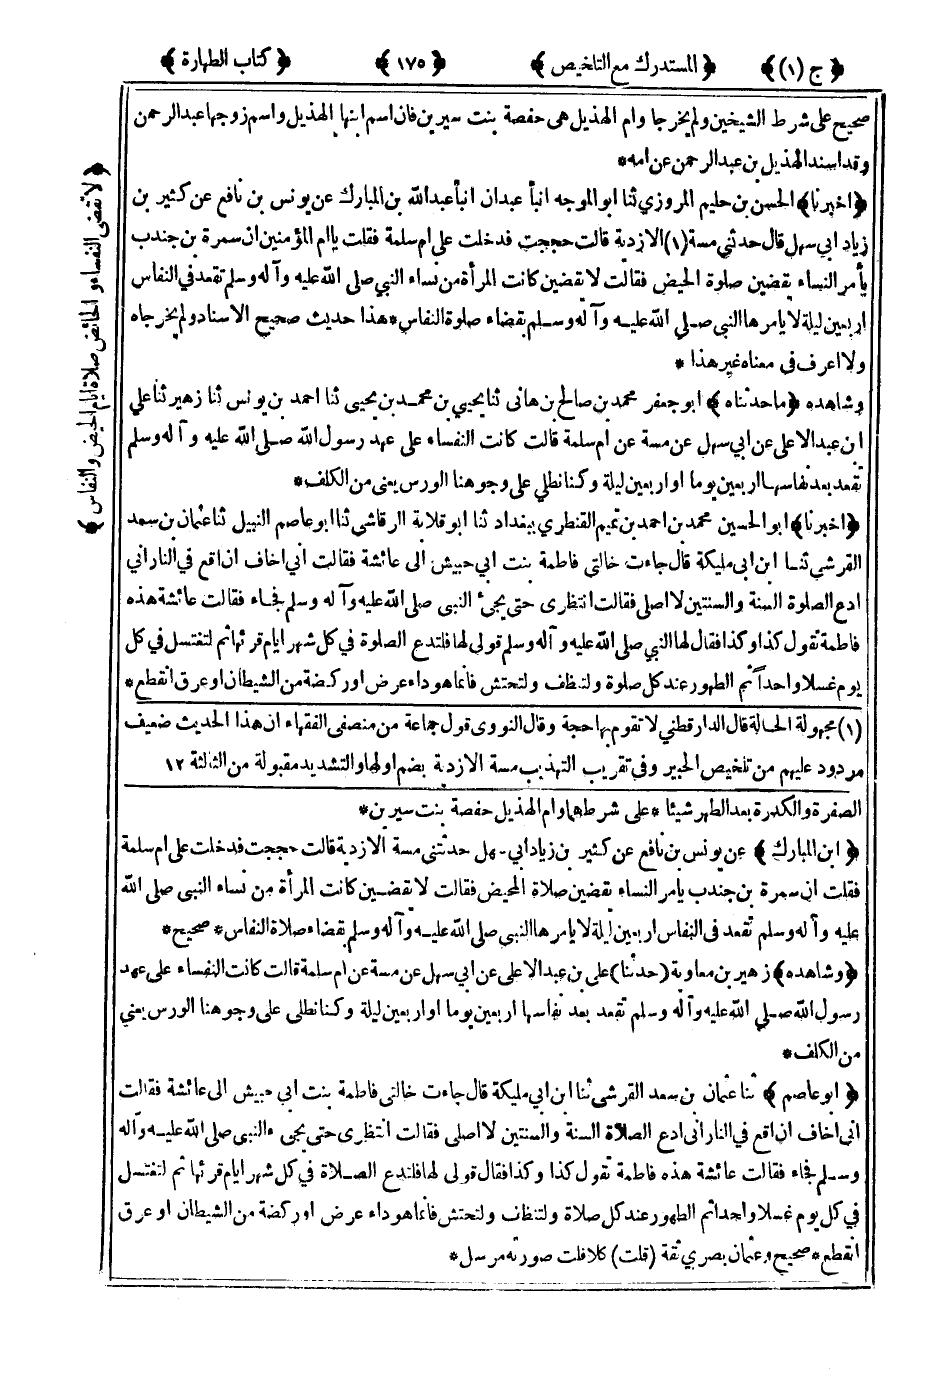 ﴿ ج (١) ﴾ ﴿ المستدرك مع التلخيص ﴾ ﴿ ١٧٥ ﴾ ﴿ كتاب الطهارة ﴾
صحيح على شرط الشيخين ولم يخرجا وام الهذيل هى حفصة بنت سيرين فان اسم ابنها الهذيل واسم زوجها عبد الرحمن
وقد اسند الهذيل بن عبد الرحمن عن امه *
﴿ اخبرنا ﴾ الحسن بن حليم المروزي ثنا ابو الموجه انبأ عبدان انبأ عبد الله بن المبارك عن يونس بن نافع عن كثير بن
زياد ابي سهل قال حدثني مسة (١) الازدية قالت حججت فدخلت على ام سلمة فقلت يا ام المؤمنين ان سمرة بن جندب
يأمر النساء يقضين صلوة الحيض فقالت لا يقضين كانت المرأة من نساء النبي صلى الله عليه وآله وسلم تقعد في النفاس
اربعين ليلة لا يامرها النبي صلى الله عليه وآله وسلم بقضاء صلوة النفاس * هذا حديث صحيح الاسناد ولم يخرجاه
ولا اعرف في معناه غير هذا *
وشاهده ﴿ ما حدثناه ﴾ ابو جعفر محمد بن صالح بن هانى ثنا يحيي بن محمد بن يحيى ثنا احمد بن يونس ثنا زهير ثنا علي
ابن عبد الاعلى عن ابي سهل عن مسة عن ام سلمة قالت كانت النفساء على عهد رسول الله صلى الله عليه وآله وسلم
تقعد بعد نفاسها اربعين يوما او اربعين ليلة وكنا نطلي على وجوهنا الورس يعنى من الكلف *
﴿ اخبرنا ﴾ ابو الحسين محمد بن احمد بن تميم القنطري ببغداد ثنا ابو قلابة الرقاشي ثنا ابو عاصم النبيل ثنا عثمان بن سعد
القرشي ثنا ابن ابى مليكة قال جاءت خالتي فاطمة بنت ابي حبيش الى عائشة فقالت اني اخاف ان اقع في النار اني
ادع الصلوة السنة والسنتين لا اصلى فقالت انتظرى حتى يجئ النبى صلى الله عليه وآله وسلم فجاء فقالت عائشة هذه
فاطمة تقول كذا وكذا فقال لها النبي صلى الله عليه وآله وسلم قولى لها فلتدع الصلوة في كل شهر ايام قرئها ثم لتغتسل في كل
يوم غسلا واحداً ثم الطهور عند كل صلوة ولتنظف ولتحتش فانما هو داء عرض او ركضة من الشيطان او عرق انقطع *
(١) مجهولة الحالة قال الدارقطني لا تقوم بها حجة وقال النووى قول جماعة من منصفى الفقهاء ان هذا الحديث ضعيف
مردود عليهم من تلخيص الحبير وفي تقريب التهذيب مسة الازدية بضم اولها والتشديد مقبولة من الثالثة ١٢
الصفرة والكدرة بعد الطهر شيئا * على شرطهما وام الهذيل حفصة بنت سيرين *
﴿ ابن المبارك ﴾ عن يونس بن نافع عن كثير بن زياد ابي سهل حدثتنى مسة الازدية قالت حججت فدخلت على ام سلمة
فقلت ان سمرة بن جندب يامر النساء يقضين صلاة المحيض فقالت لا يقضين كانت المرأة من نساء النبى صلى الله
عليه وآله وسلم تقعد فى النفاس اربعين ليلة لا يامرها النبي صلى الله عليه وآله وسلم بقضاء صلاة النفاس * صحيح *
﴿ وشاهده ﴾ زهير بن معاوية (حدثنا) علي بن عبد الاعلى عن ابي سهل عن مسة عن ام سلمة قالت كانت النفساء على عهد
رسول الله صلي الله عليه وآله وسلم تقعد بعد نفاسها اربعين يوما او اربعين ليلة وكنا نطلى على وجوهنا الورس يعني
من الكلف *
﴿ ابو عاصم ﴾ ثنا عثمان بن سعد القرشي ثنا ابن ابي مليكة قال جاءت خالتى فاطمة بنت ابي حبيش الى عائشة فقالت
انى اخاف ان اقع في النار انى ادع الصلاة السنة والسنتين لا اصلى فقالت انتظرى حتى يجيء النبى صلى الله عليه وآله
وسلم فجاء فقالت عائشة هذه فاطمة تقول كذا وكذا فقال قولى لها فلتدع الصلاة في كل شهر ايام قرئها ثم لتغتسل
في كل يوم غسلا واحدا ثم الطهور عند كل صلاة ولتنظف ولتحتش فانما هو داء عرض او ركضة من الشيطان او عرق
انقطع * صحيح وعثمان بصري ثقة (قلت) كلا قلت صورته مرسل *
﴿ لا تقضى النفساء و الحائض صلاة ايام الحيض والنفاس ﴾